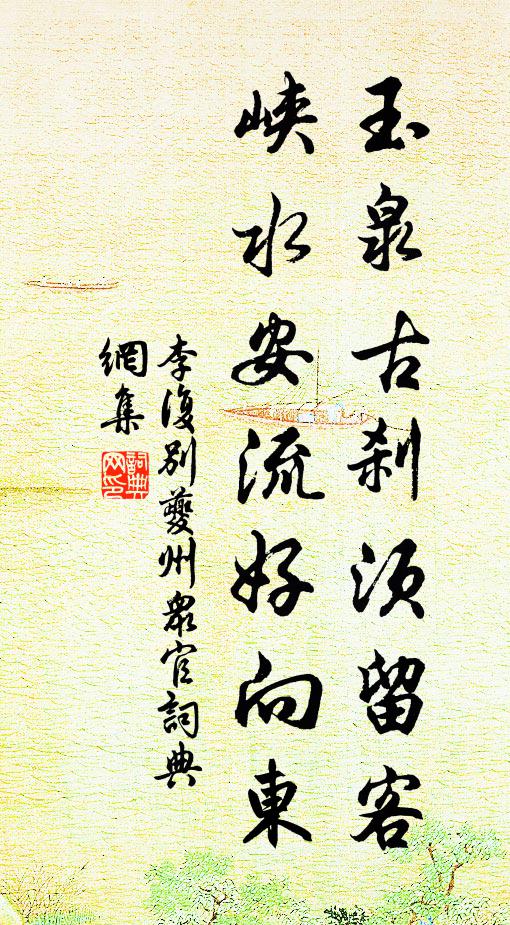 玉泉古刹須留客
峽水安流好向東
李復別夔州眾官詞典
網集
詞典
网印